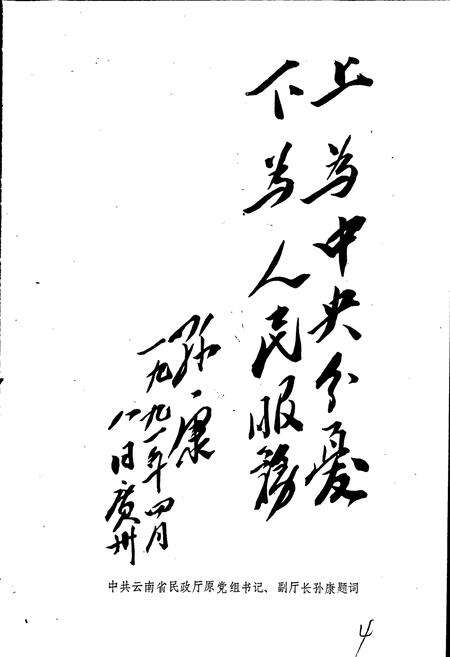 上为中央分憂
下为人民服務
孙康
一九九一年四月
八日廣州
中共云南省民政厅原党组书记、副厅长孙康题词
4